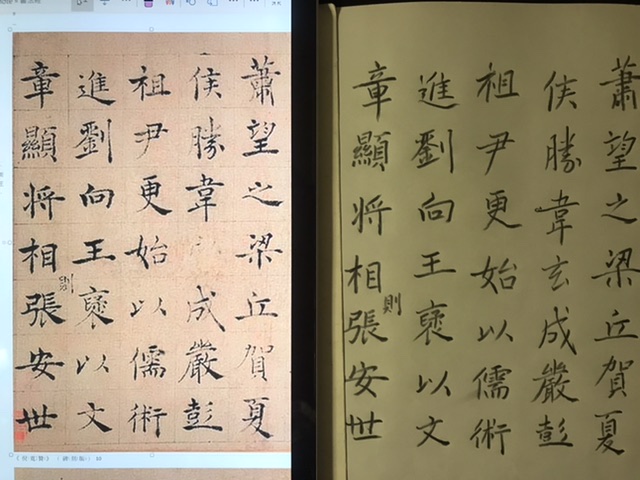 蕭望之梁丘賀夏
侯勝韋成嚴彭
祖尹更始以儒術
進劉向王褒以文
章顯將相則張安世
蕭望之梁丘賀夏
侯勝韋玄成嚴彭
祖尹更始以儒術
進劉向王褒以文
章顯將相則張安世